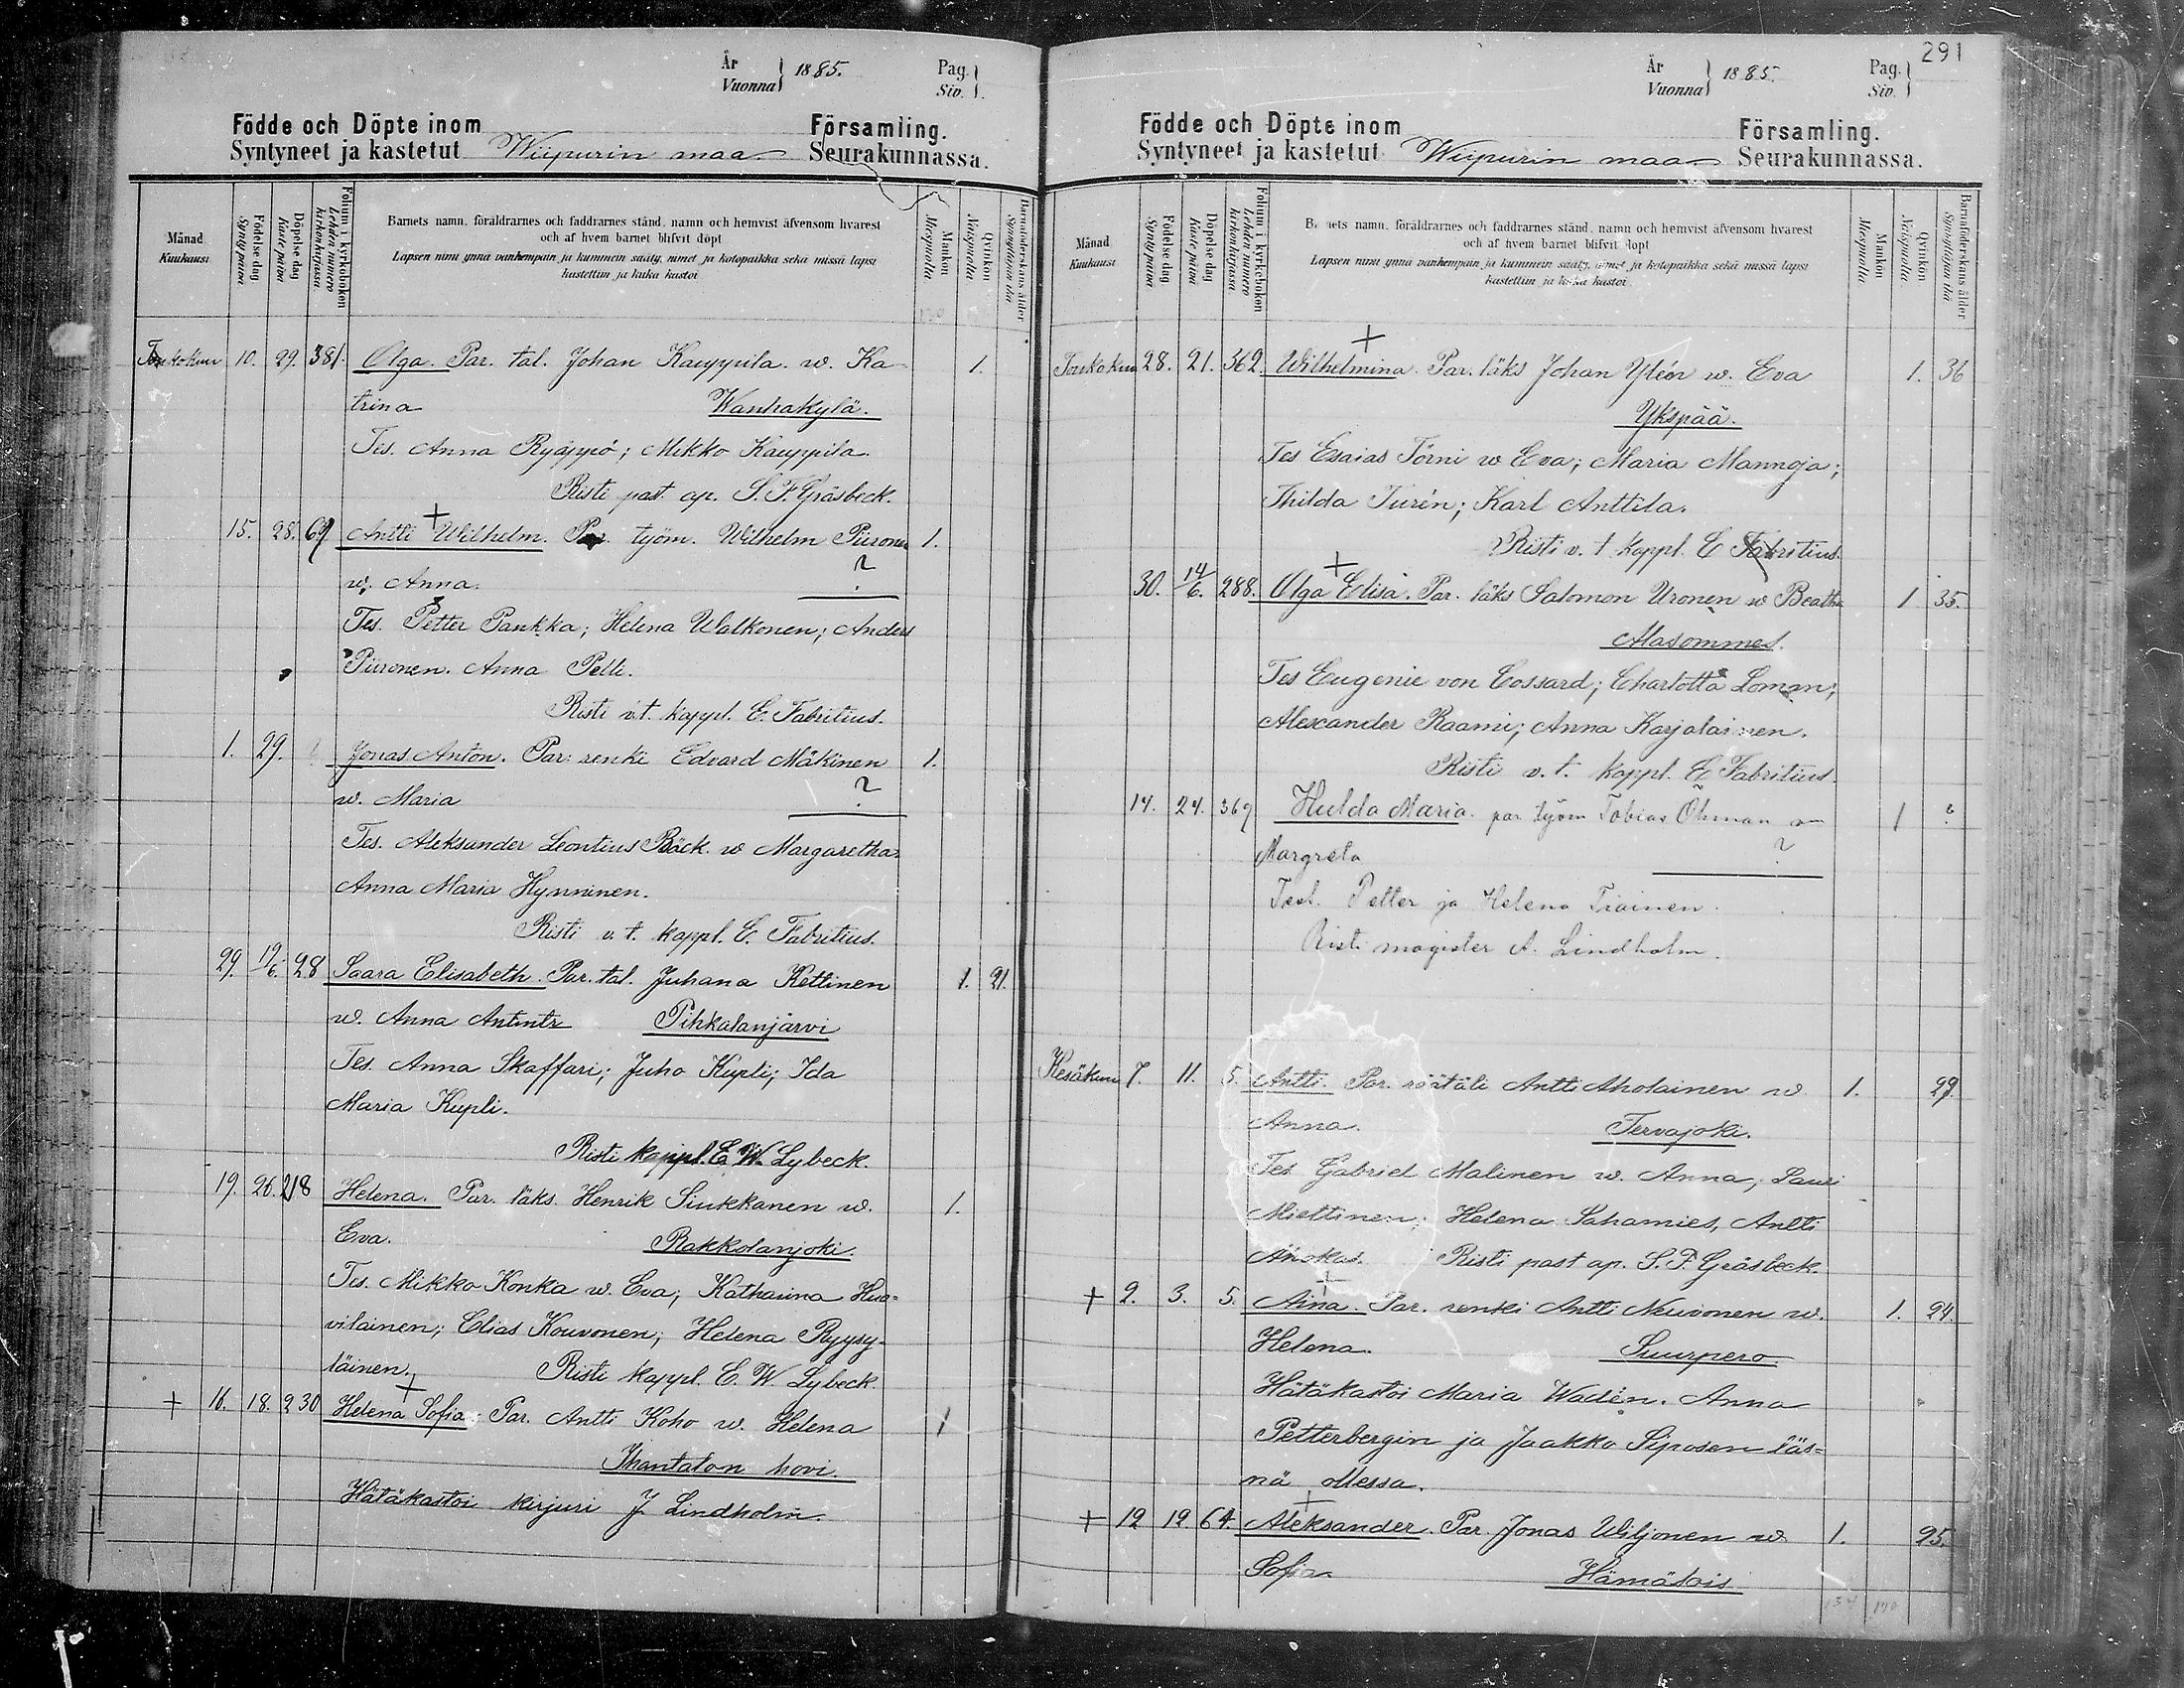 År
Vuonna } 1885. Pag.
Siv.
Födde och Döpte inom Församling.
Syntyneet ja kastetut Wiipurin maa Seurakunnassa.
Månad
Kuukausi
Födelse dag
Synty päivä
Döpelse dag
Kaste päivä
Folium i kyrkoboken
Lehden numero kirkonkirjassa
Barnets namn, föräldrarnes och faddrarnes stånd, namn och hemvist äfvensom hvarest
och af hvem barnet blifvit döpt
Lapsen nimi ynnä vanhempain ja kummein sääty, nimet ja kotopaikka sekä missä lapsi
kastettiin ja kuka kastoi
Mankön
Miespuolta
Qvinkön
Naispuolta
Barnaföderskans ålder
Synnyttäjän ikä
Toukokuu 10. 29. 381. Olga. Par. tal. Johan Kauppila w. Ka- 1.
trina Wanhakylä.
Tes. Anna Ryäppö; Mikko Kauppila.
Risti past. ap. S. F. Gräsbeck.
15. 28. 69 Antti Wilhelm. Par. työm. Wilhelm Piironen 1.
w. Anna. ?
Tes. Petter Pankka; Helena Walkonen; Anders
Piironen. Anna Pelli.
Risti v.t. kappl. E. Fabritius.
1. 29. Jonas Anton. Par. renki Edvard Mäkinen 1.
w. Maria ?
Tes. Aleksander Leontius Bäck w Margaretha
Anna Maria Hynninen.
Risti v. t. kappl. E. Fabritius.
29. 1/6. 28 Saara Elisabeth. Par. tal. Juhana Kettinen 1. 21.
w. Anna Antintr Pihkalanjärvi
Tes. Anna Skaffari; Juho Kupli; Ida
Maria Kupli.
Risti kappl. E. W. Lybeck.
19. 26. 218 Helena. Par. läks. Henrik Sinkkanen w. 1.
Eva. Rakkolanjoki.
Tes. Mikko Konka w. Eva; Katharina Huo-
vilainen; Elias Kouvonen; Helena Ryysy-
läinen. Risti kappl. E. W. Lybeck.
+ 16. 18. 230 Helena Sofia Par. Antti Koho w. Helena 1
Ihantalon hovi.
Hätäkastoi kirjuri J Lindholm.
291
År
Vuonna } 1885. Pag.
Siv.
Födde och Döpte inom Församling.
Syntyneet ja kastetut Wiipurin maa Seurakunnassa.
Månad
Kuukausi
Födelse dag
Synty päivä
Döpelse dag
Kaste päivä
Folium i kyrkoboken
Lehden numero kirkonkirjassa
Barnets namn, föräldrarnes och faddrarnes stånd, namn och hemvist äfvensom hvarest
och af hvem barnet blifvit döpt
Lapsen nimi ynnä vanhempain ja kummein sääty, nimet ja kotopaikka sekä missä lapsi
kastettiin ja kuka kastoi
Mankön
Miespuolta
Qvinkön
Naispuolta
Barnaföderskans ålder
Synnyttäjän ikä
Toukokuu 28. 21. 362. Wilhelmina. Par. läks Johan Yleön w. Eva 1. 36
Ykspää.
Tes Esaias Törni w Eva; Maria Mannoja;
Thilda Turén; Karl Anttila.
Risti v. t kappl. E Fabritius.
30. 14/6. 288. Olga Elisa. Par. läks Salomon Uronen w Beatha 1 35.
Alasommes.
Tes Eugenie von Cossard; Charlotta Loman;
Alexander Raami; Anna Karjalainen.
Risti v. t. kappl. E Fabritius.
14. 24. 369 Hulda Maria. par. työm Tobias Öhman w 1 ?
Margreta ?
Test. Petter ja Helena Tiainen.
Risti magister A. Lindholm.
Kesäkuu 7. 11. 5. Antti. Par. räätäli Antti Aholainen w 1. 29.
Anna. Tervajoki.
Tes Gabriel Malinen w. Anna; Lauri
Miettinen; Helena Sahamies, Antti
Ahokas. Risti past ap. S. F. Gräsbeck.
+ 2. 3. 5. Aina. Par. renki Antti Neuvonen w. 1. 24.
Helena. Suurpero
Hätäkastoi Maria Wadén. Anna
Petterbergin ja Jaakko Siposen läs-
nä ollessa.
+ 12 12. 64. Aleksander. Par. Jonas Wiljonen w 1. 25.
Sofia. Hämäläis